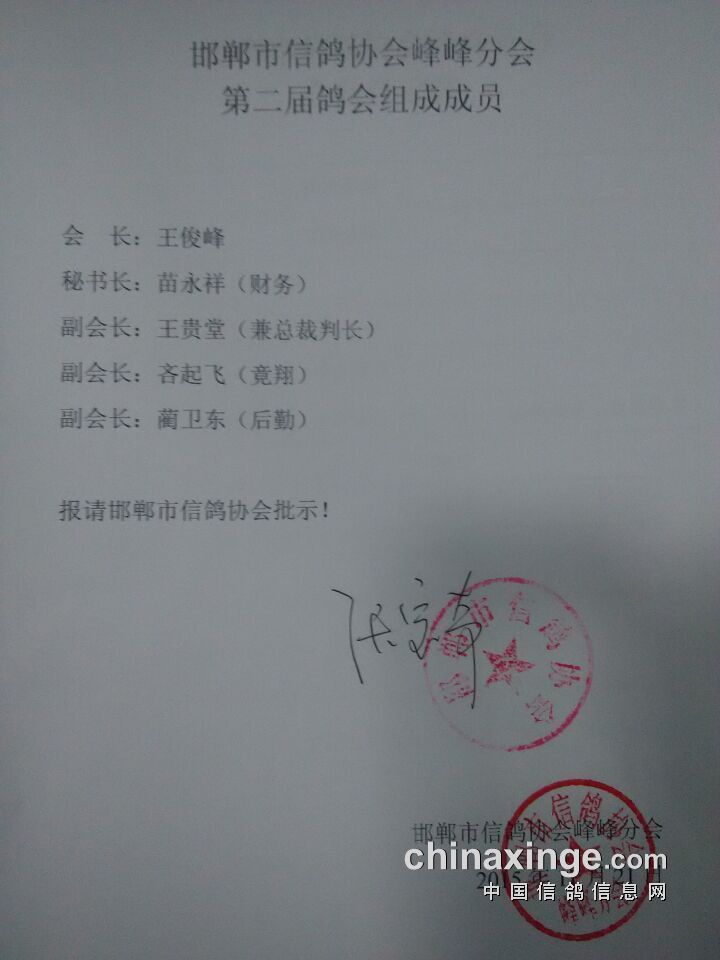 邯郸市信鸽协会峰峰分会
第二届鸽会组成成员
会　长：王俊峰
秘书长：苗永祥（财务）
副会长：王贵堂（兼总裁判长）
副会长：吝起飞（竟翔）
副会长：蔺卫东（后勤）
报请邯郸市信鸽协会批示！
邯郸市信鸽协会
邯郸市信鸽协会峰峰分会
chinaxinge.com
中国信鸽信息网